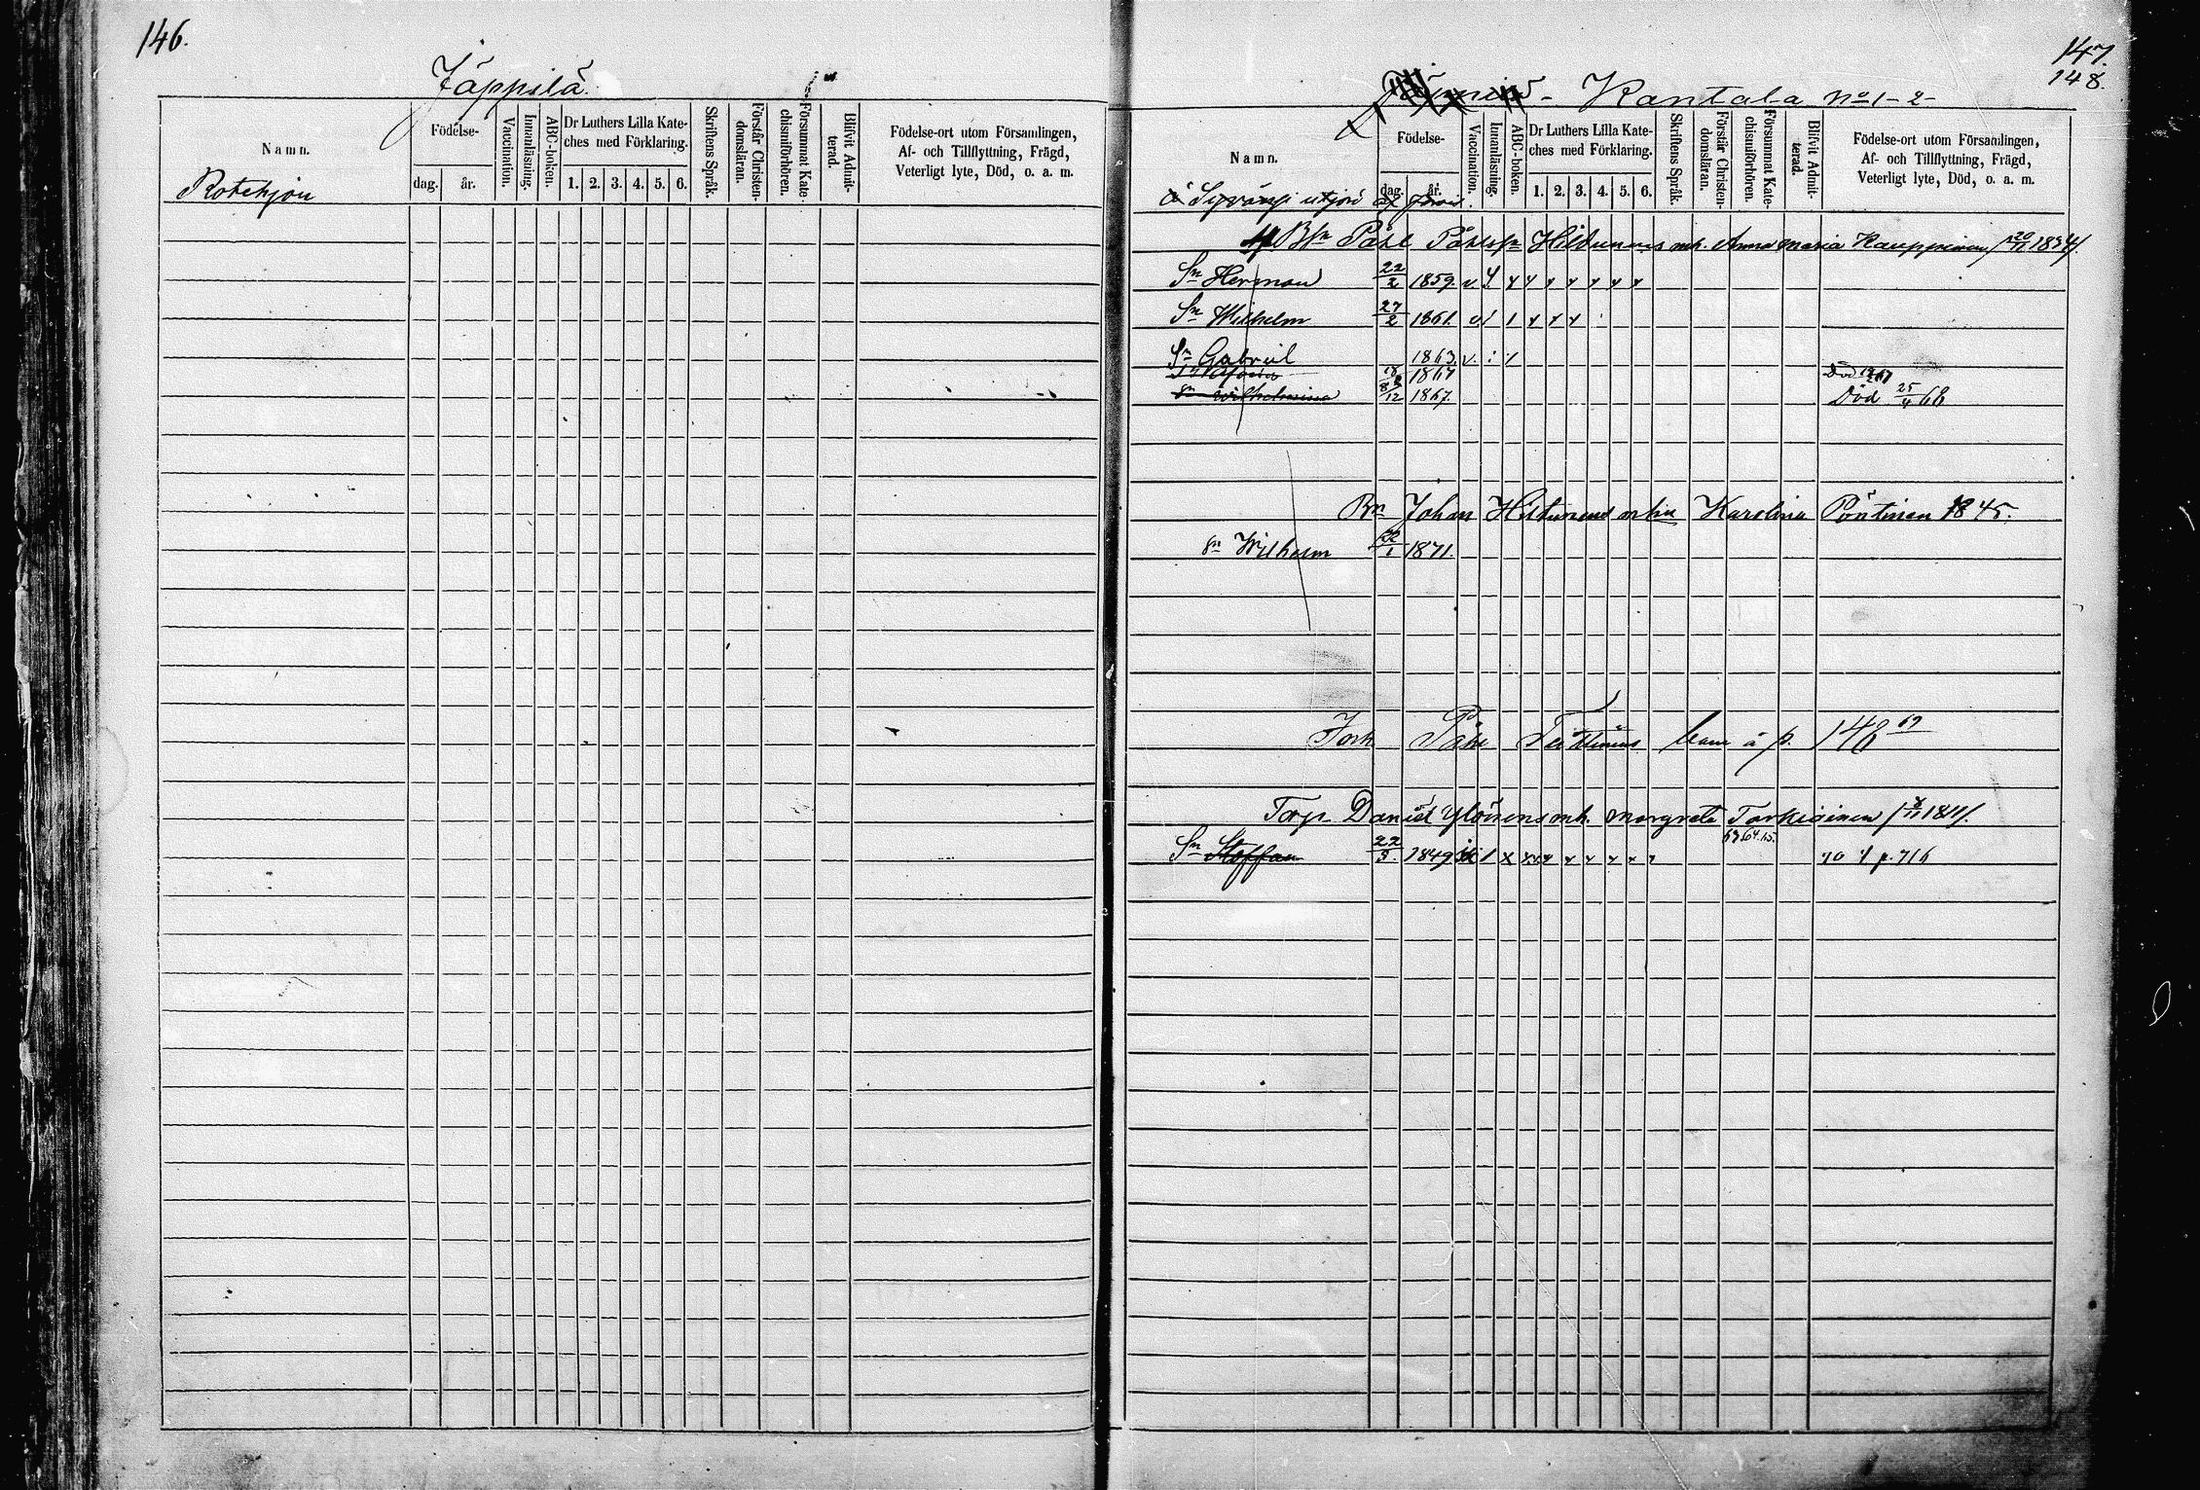 146.
Jäppilä
Namn.
Födelse-
dag.
år.
Vaccination.
Innanläsning.
ABC-boken.
Dr Luthers Lilla Kate-
ches med Förklaring.
1. 2. 3. 4. 5. 6.
Skriftens Språk.
Förstår Christen-
domsläran.
Försummat Kate-
chismiförhören.
Blifvit Admit-
terad.
Födelse-ort utom Församlingen,
Af- och Tillflyttning, Frägd,
Veterligt lyte, Död, o. a. m.
147.
148.
Kantala No 1-2-
Namn.
Födelse-
dag.
år.
Vaccination.
Innanläsning.
ABC-boken.
Dr Luthers Lilla Kate-
ches med Förklaring.
1. 2. 3. 4. 5. 6.
Skriftens Språk.
Förstår Christen-
domsläran.
Försummat Kate-
chismiförhören.
Blifvit Admit-
terad.
Födelse-ort utom Församlingen,
Af- och Tillflyttning, Frägd,
Veterligt lyte, Död, o. a. m.
Påhl Påhlsson Hiltunens mh. Anna Maria Kauppinen 1834
Sn Herman 22/2 1859. v
Sn Wilhelm 27/2 1861. v
Sn Gabriel 1863. v.
1867 Död
Wilhelmina 8/12 1867. Död 25/4 68
Bn Johan Hiltunens enka Karolina Pöntinen 1845.
Sn Wilhelm 22/1 1871.
Påhl barn å p. 148
Torp. Daniel Ylösens mh. Margreta Tarkiainen 1811
63 64. 65.
Sn Staffan 22/3. 1849 p. 716